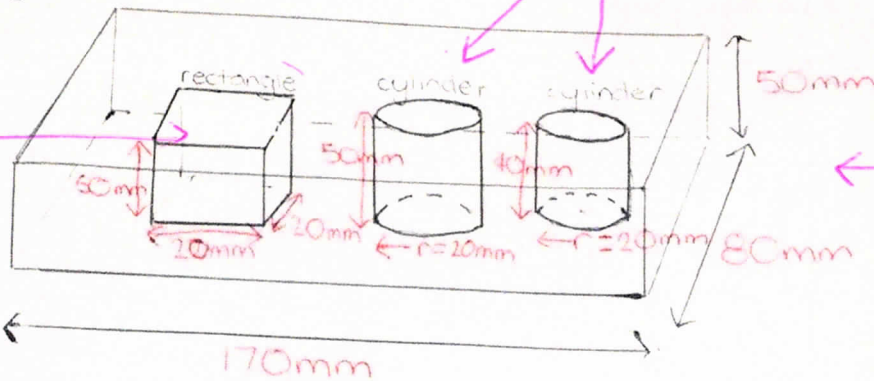 rectangle
cylinder
cylinder
50mm
50mm
40mm
20mm
20mm
r=20mm
r=20mm
80mm
170mm